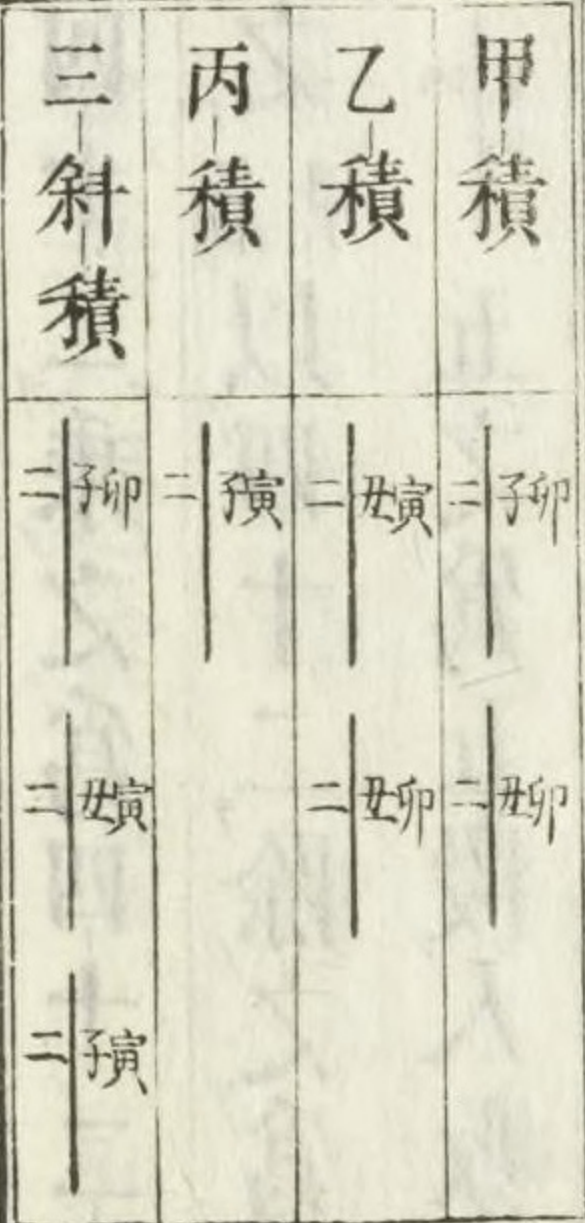 甲積
二|子卯
二|丑卯
乙積
二|丑寅
二|丑卯
丙積
二|子寅
三斜積
二|子卯
二|丑寅
二|子寅